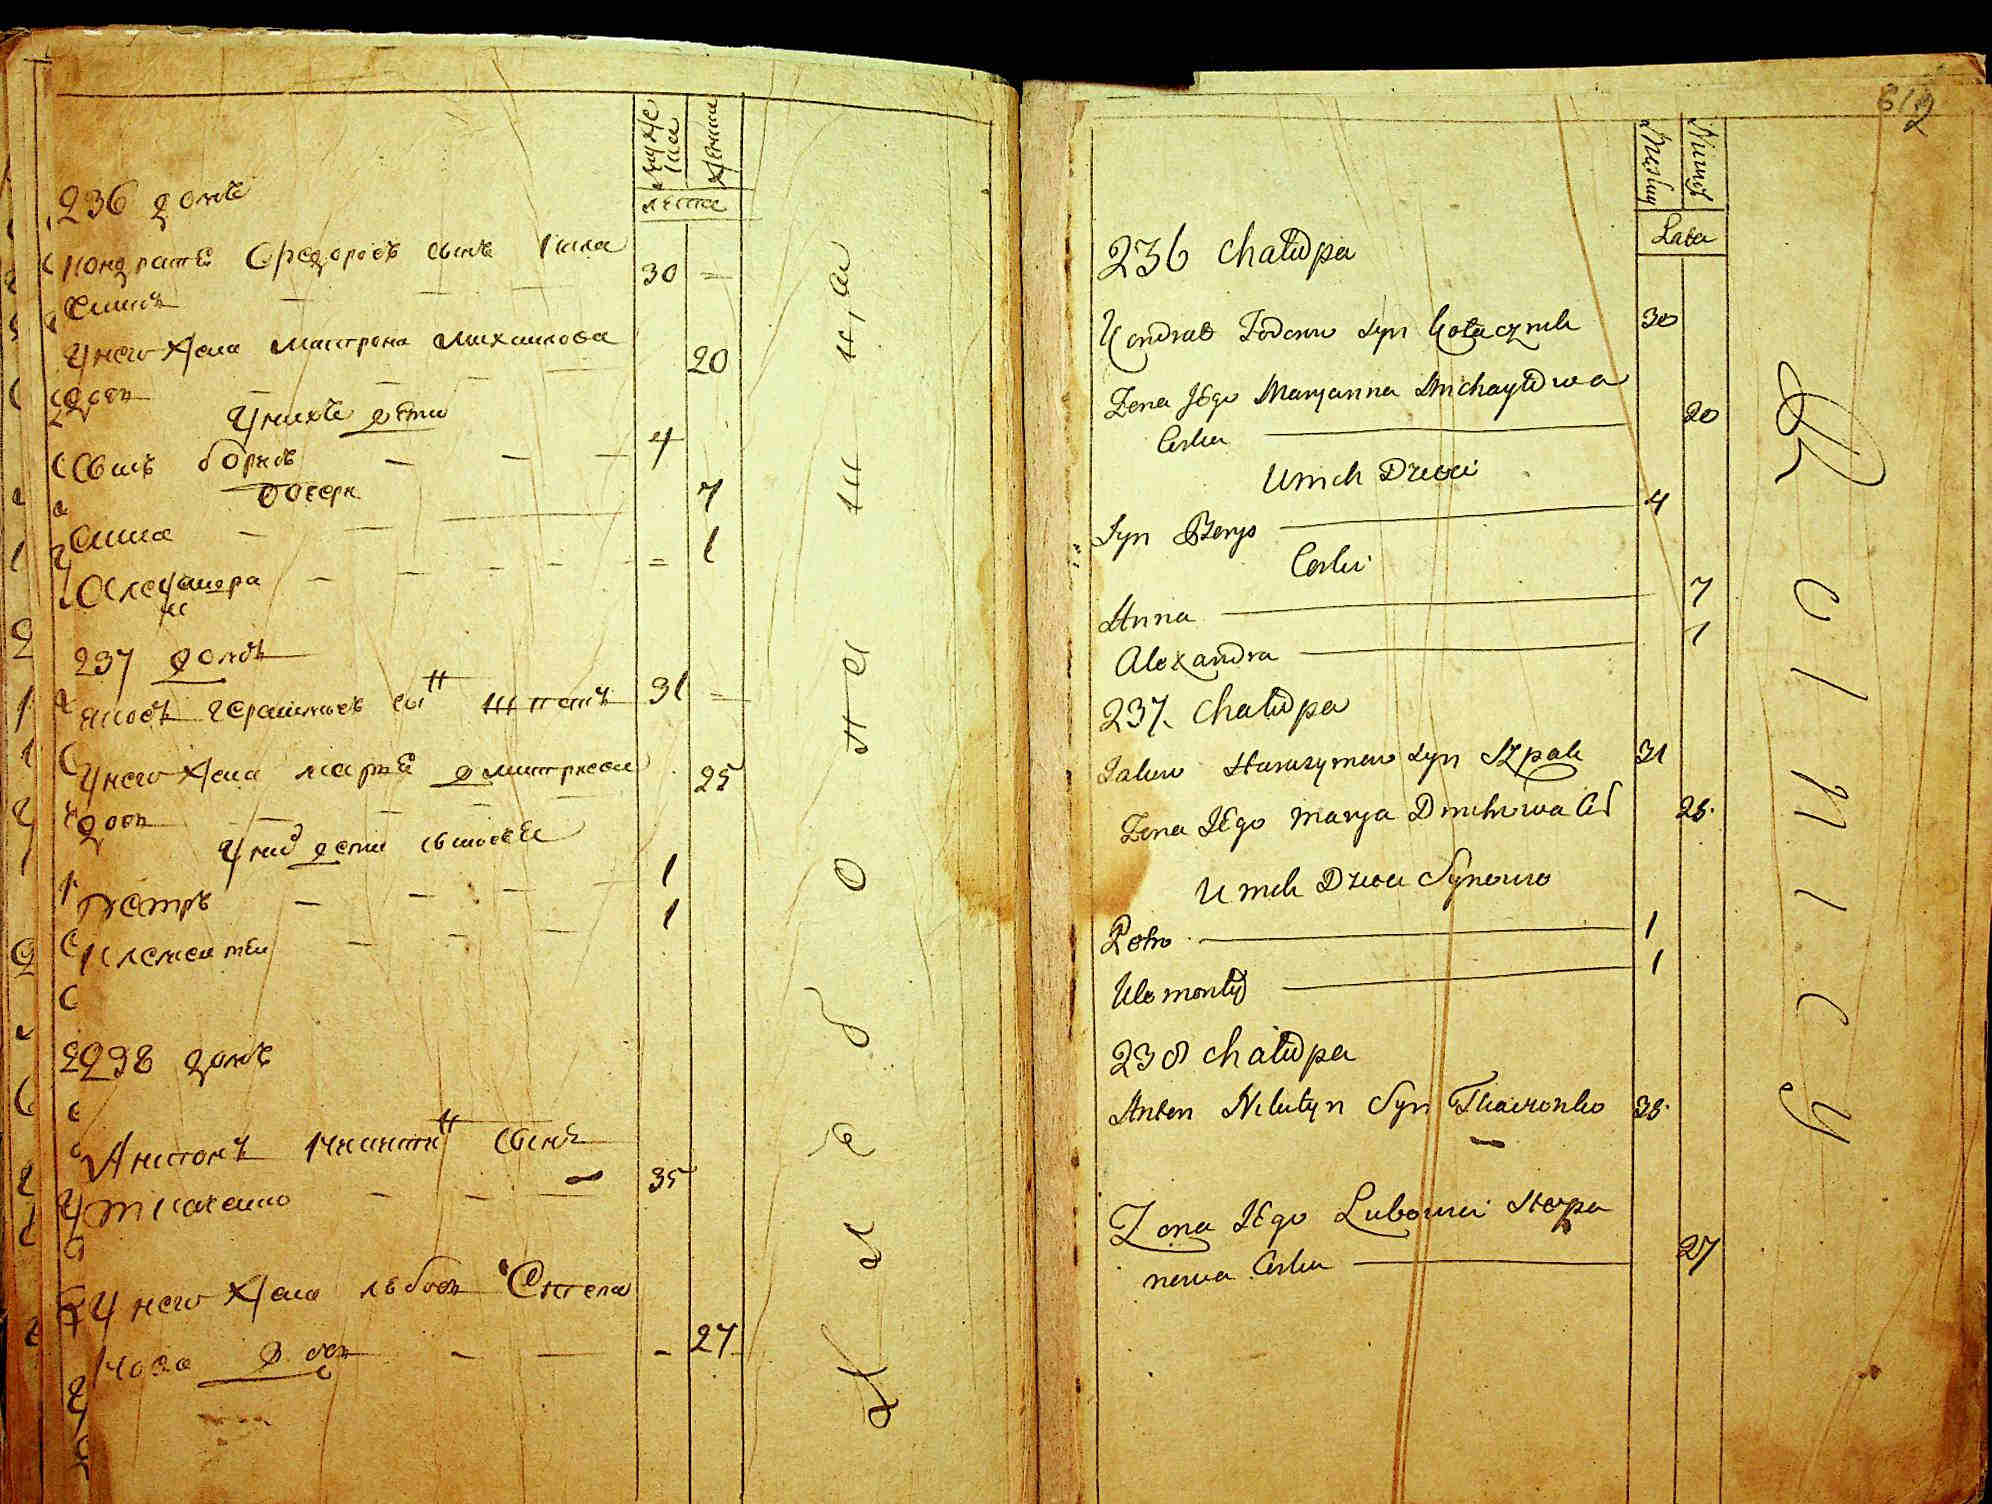 мужеска
женска
лета
236 домъ
кондратъ Федоровъ сынъ Кола
30
20
чникъ
У него жена мотрона михаилова
дочь
У нихъ дети
Сынъ борисъ
4
дочери
анна
7
Олександра
1
237 домъ
яковъ герасимовъ сынъ шпакъ
31
У него жена маръя дмитриева
25
дочь
У них дети сыновья
Петръ
1
Климентей
1
238 домъ
Антонъ никитинъ сынъ
ткаченко
35
У него жена любовь Степа
нова дочь
27
Męskiey
Lata
236 chałupa
Kondrat Fedorow Syn Kołacznik
30
Żona Jego Maryanna Michayłowa
Corka
20
U nich Dzieci
Syn Borys
4
Corki
Anna
7
Alexandra
1
237. chałupa
Jakow Harasymow Syn Szpak
31
Żona Jego Marya Dmitriowa C
25.
U nich Dzieci Synowie
Petro
1
Klementy
1
238 chałupa
Anton Nikityn Syn Tkaczenko
35.
Żona Jego Lubow Stepa
nowa Corka
27
Rolnicy